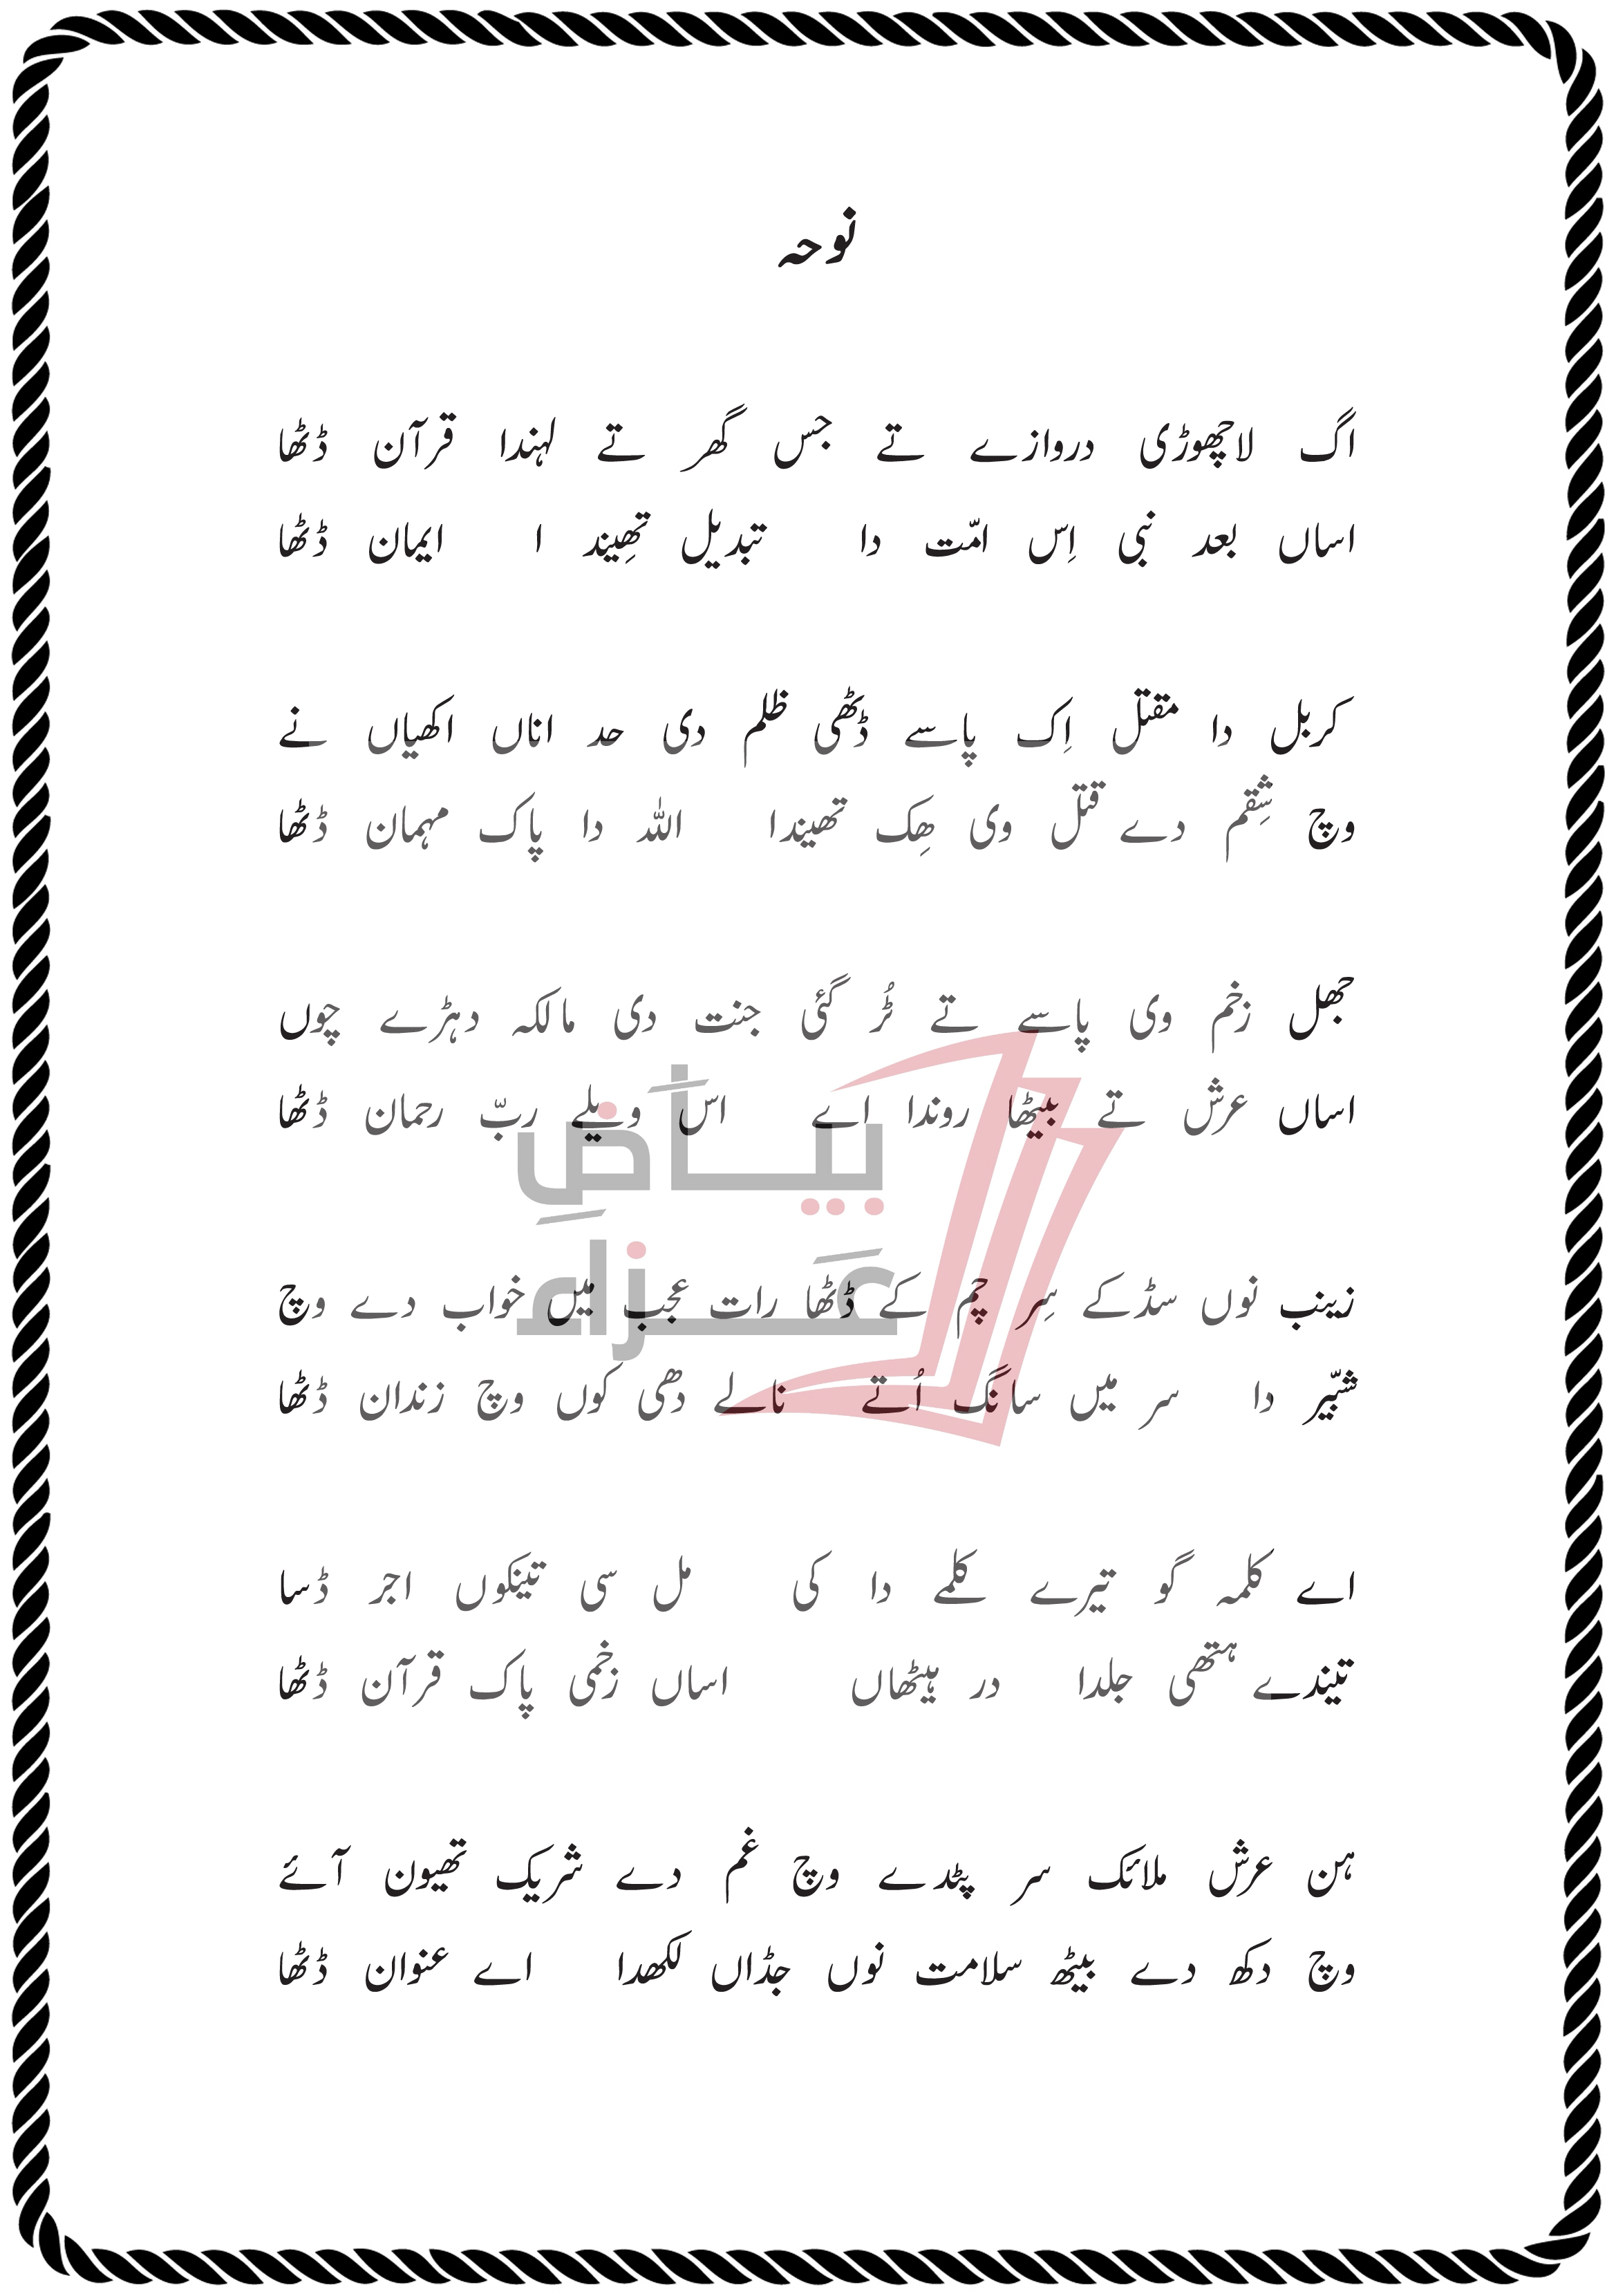 نوحہ
اگ لاچھوڑی دروازے تے جس گھر تے لہندا قرآن ڈٹھا
اساں بعد نبی اِس امّت دا تبدیل تھِیند ا ایمان ڈٹھا
کربل دا مقتل اِک پاسے ڈٹھی ظلم دی حد اناں اکھیاں نے
وچ شِقم دے قتل وی ھِک تھیندا اللہ دا پاک مہمان ڈٹھا
جھل زخم وی پاسے تے ٹُر گئی جنت دی مالکہ دہڑے چوں
اساں عرش تے بیٹھا روندا اے اس ویلے ربّ رحمان ڈٹھا
زینب نوں سڈکے سِر چم کے ڈٹھا رات عجب میں خواب دے وچ
شبّیر دا سر میں سانگ اُتے نالے دھی کوں وچ زندان ڈٹھا
اے کلمہ گو تیرے کلمے دا کی مل سی تینکوں اجر ڈسا
تیندے ہتھی جلدا در ہیٹھاں اساں زخمی پاک قرآن ڈٹھا
ہن عرش ملائک سر پٹدے وچ غم دے شریک تھیون آئے
وچ دکھ دے بیٹھ سلامت نوں جڈاں لکھدا اے عنوان ڈٹھا
بیاضِ
عزاء